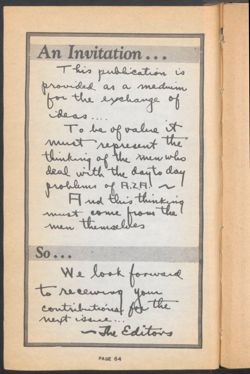 An Invitation...
This publication is
provided as a medium
for the exchange of
ideas....
To be of value it
must represent the
thinking of the men who
deal with the day to day
problems of A.Z.A. ~
And this thinking
must come from the
men themselves
So...
We look forward
to receiving your
contributions for the
next issue...
~The Editors
PAGE 64